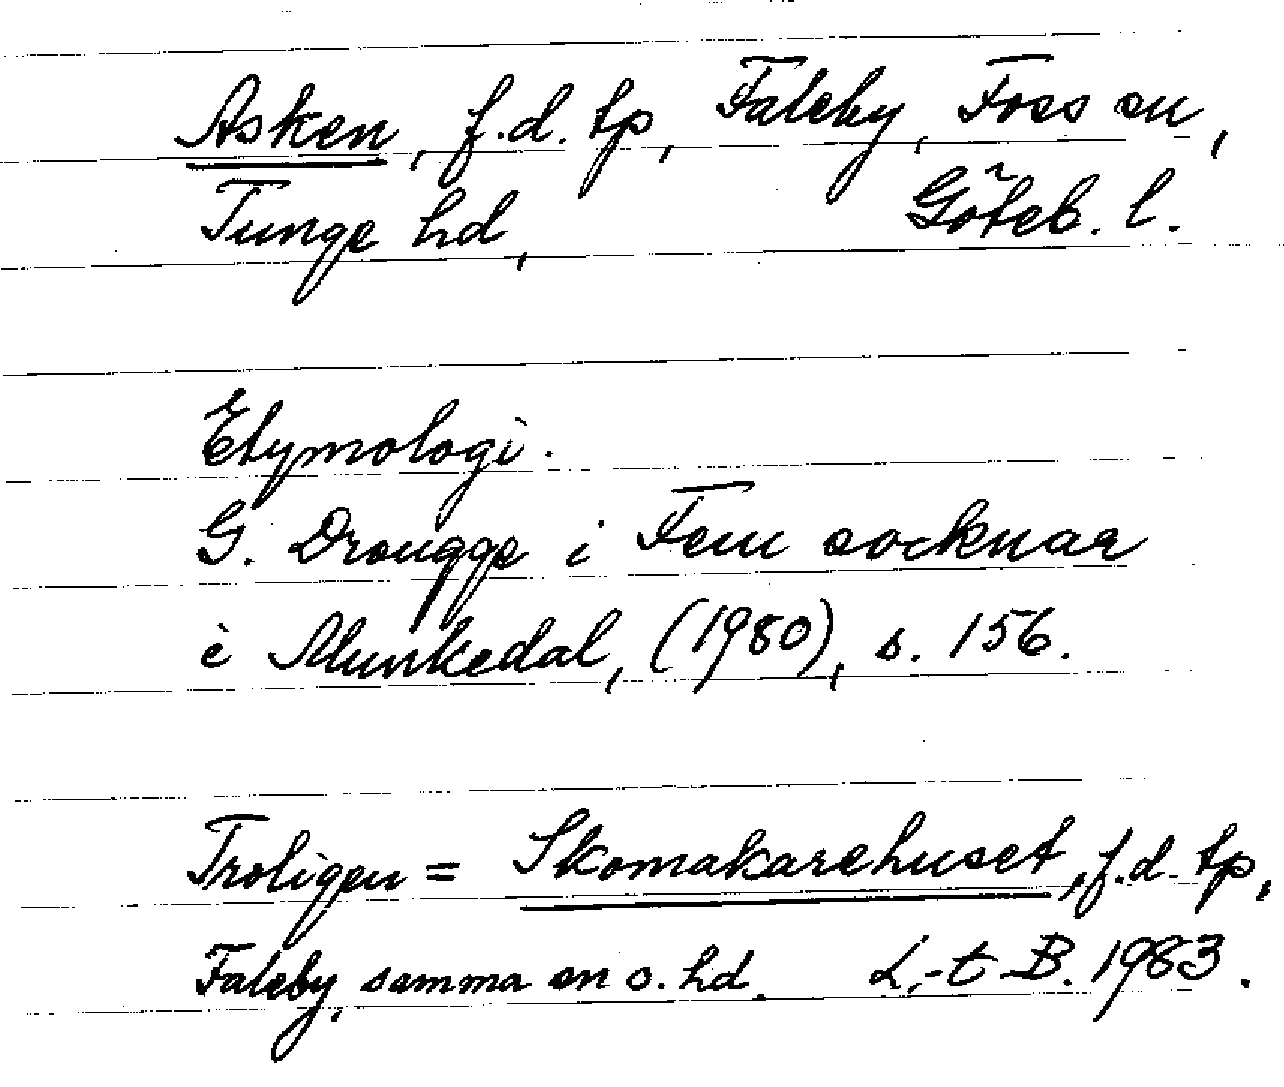 Asken, f.d. tp, Faleby, Foss sn,
Tunge hd, Göteb. l.
Etymologi.
G. Drougge i Fem socknar
i Munkedal, (1980), s. 156.
Troligen = Skomakarehuset, f.d. tp,
Faleby, samma sn o. hd. L.-t B. 1983.